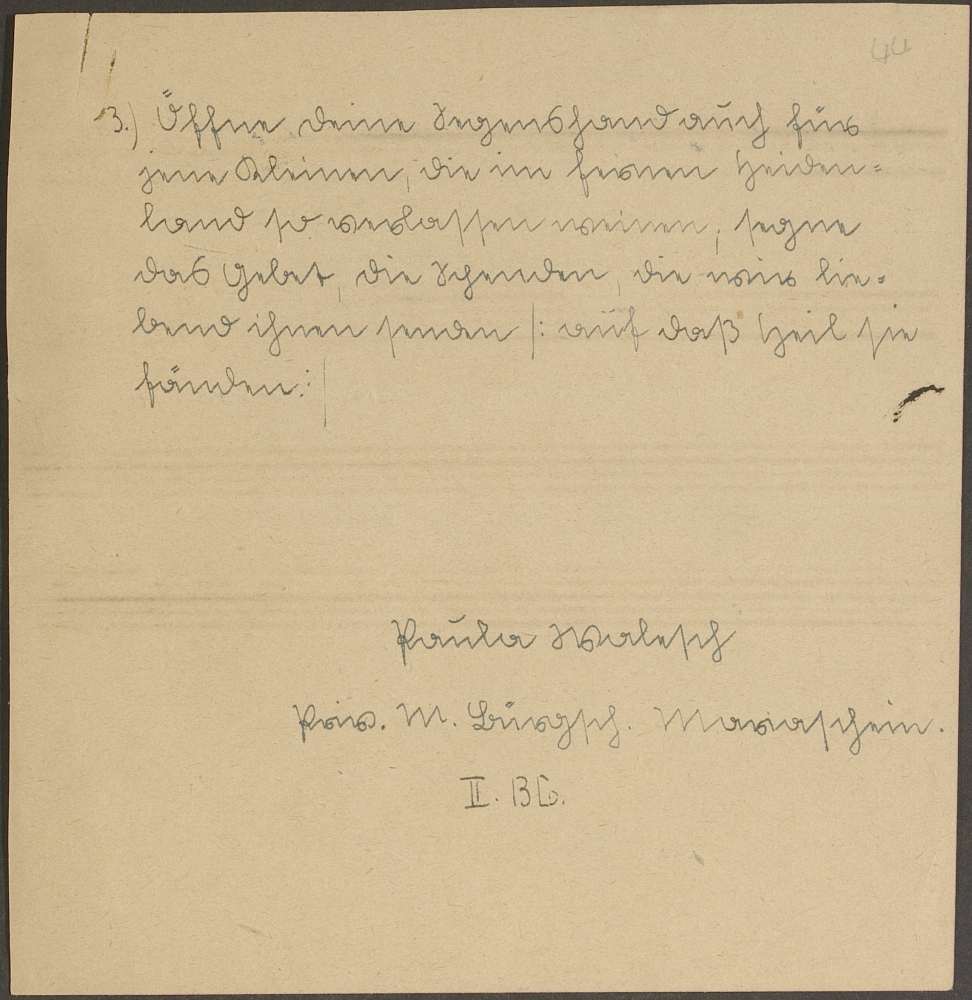 44
3.) Öffne deine Segenshand auch für
jene Kleinen, die im fernen Heiden=
land so verlassen weinen, segne
das Gebet, die Spenden, die wir lie=
bend ihnen senden |: auf daß Heil sie
fänden :|
Paula Walesch
Priv. M. Bürgsch. Mariaschein.
II. BG.